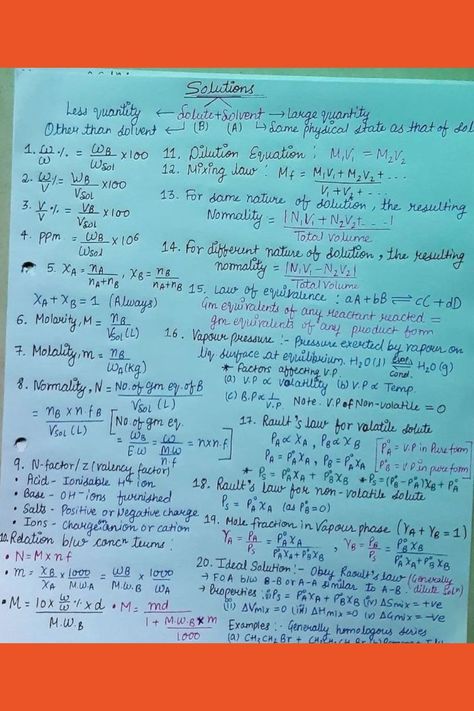 Solutions
Less quantity ← Solute + Solvent → large quantity
Other than solvent ← (B) (A) ↳ Same physical state as that of sol
1. w/w % = W_B/W_Sol × 100
2. w/V % = W_B/V_Sol × 100
3. V/V % = V_B/V_Sol × 100
4. PPm = W_B/W_Sol × 10^6
5. X_A = n_A/(n_A+n_B), X_B = n_B/(n_A+n_B)
X_A + X_B = 1 (Always)
6. Molarity, M = n_B/V_Sol(L)
7. Molality, m = n_B/W_A(kg)
8. Normality, N = No. of gm eq. of B/V_Sol (L)
= n_B × n.f_B/V_Sol (L) [No of gm eq. = W_B/EW = W/(M/n.f) = n×n.f]
9. N-factor/z (valency factor)
• Acid - Ionisable H⁺ ion
• Base - OH⁻ ions furnished
• Salts - Positive or Negative charge
• Ions - Charge anion or cation
10. Relation b/w concⁿ terms:
• N = M × n f
• m = X_B/X_A × 1000/M.W._A = W_B/W_A × 1000/M.W._B
• M = 10 × w/w % × d/M.W._B • M = md/(1 + M.W._B × m/1000)
11. Dilution Equation : M₁V₁ = M₂V₂
12. Mixing law : M_f = M₁V₁ + M₂V₂ + .../V₁ + V₂ + ...
13. For same nature of solution, the resulting
Normality = |N₁V₁ + N₂V₂ + ...|/Total Volume
14. For different nature of solution, the resulting
normality = |N₁V₁ - N₂V₂|/Total Volume
15. Law of equivalence : aA + bB ⇌ cC + dD
Gm equivalents of any reactant reacted =
gm equivalents of any product form
16. Vapour pressure :- Pressure exerted by vapour on
liq. surface at equilibrium. H₂O(l) ⇌ H₂O(g) Evap. Cond.
* Factors affecting V.P.
(a) V.P ∝ volatility (b) V.P ∝ Temp.
(c) B.P ∝ 1/V.P. Note. V.P of Non-volatile = 0
17. Rault's law for volatile solute
P_A ∝ X_A, P_B ∝ X_B
P_A = P°_A X_A, P_B = P°_B X_B [P°_A = V.P in Pure form
* P_S = P°_A X_A + P°_B X_B * P_S = (P°_A - P°_B) X_A + P°_B [P°_B = V.P in pure form
18. Rault's law for non-volatile solute
P_S = P°_A X_A (as P°_B = 0)
19. Mole fraction in Vapour phase (Y_A + Y_B = 1)
Y_A = P_A/P_S = P°_A X_A/(P°_A X_A + P°_B X_B), Y_B = P_B/P_S = P°_B X_B/(P°_A X_A + P°_B X_B)
20. Ideal Solution :- Obey Raoult's law (Generally
→ FOA b/w B-B or A-A similar to A-B. dilute Solⁿ)
→ Properties : (i) P_S = P°_A X_A + P°_B X_B (iv) ΔS mix = +ve
(ii) ΔV mix = 0 (iii) ΔH mix = 0 (v) ΔG mix = -ve
Examples :- Generally homologous series
(a) CH₃CH₂Br +